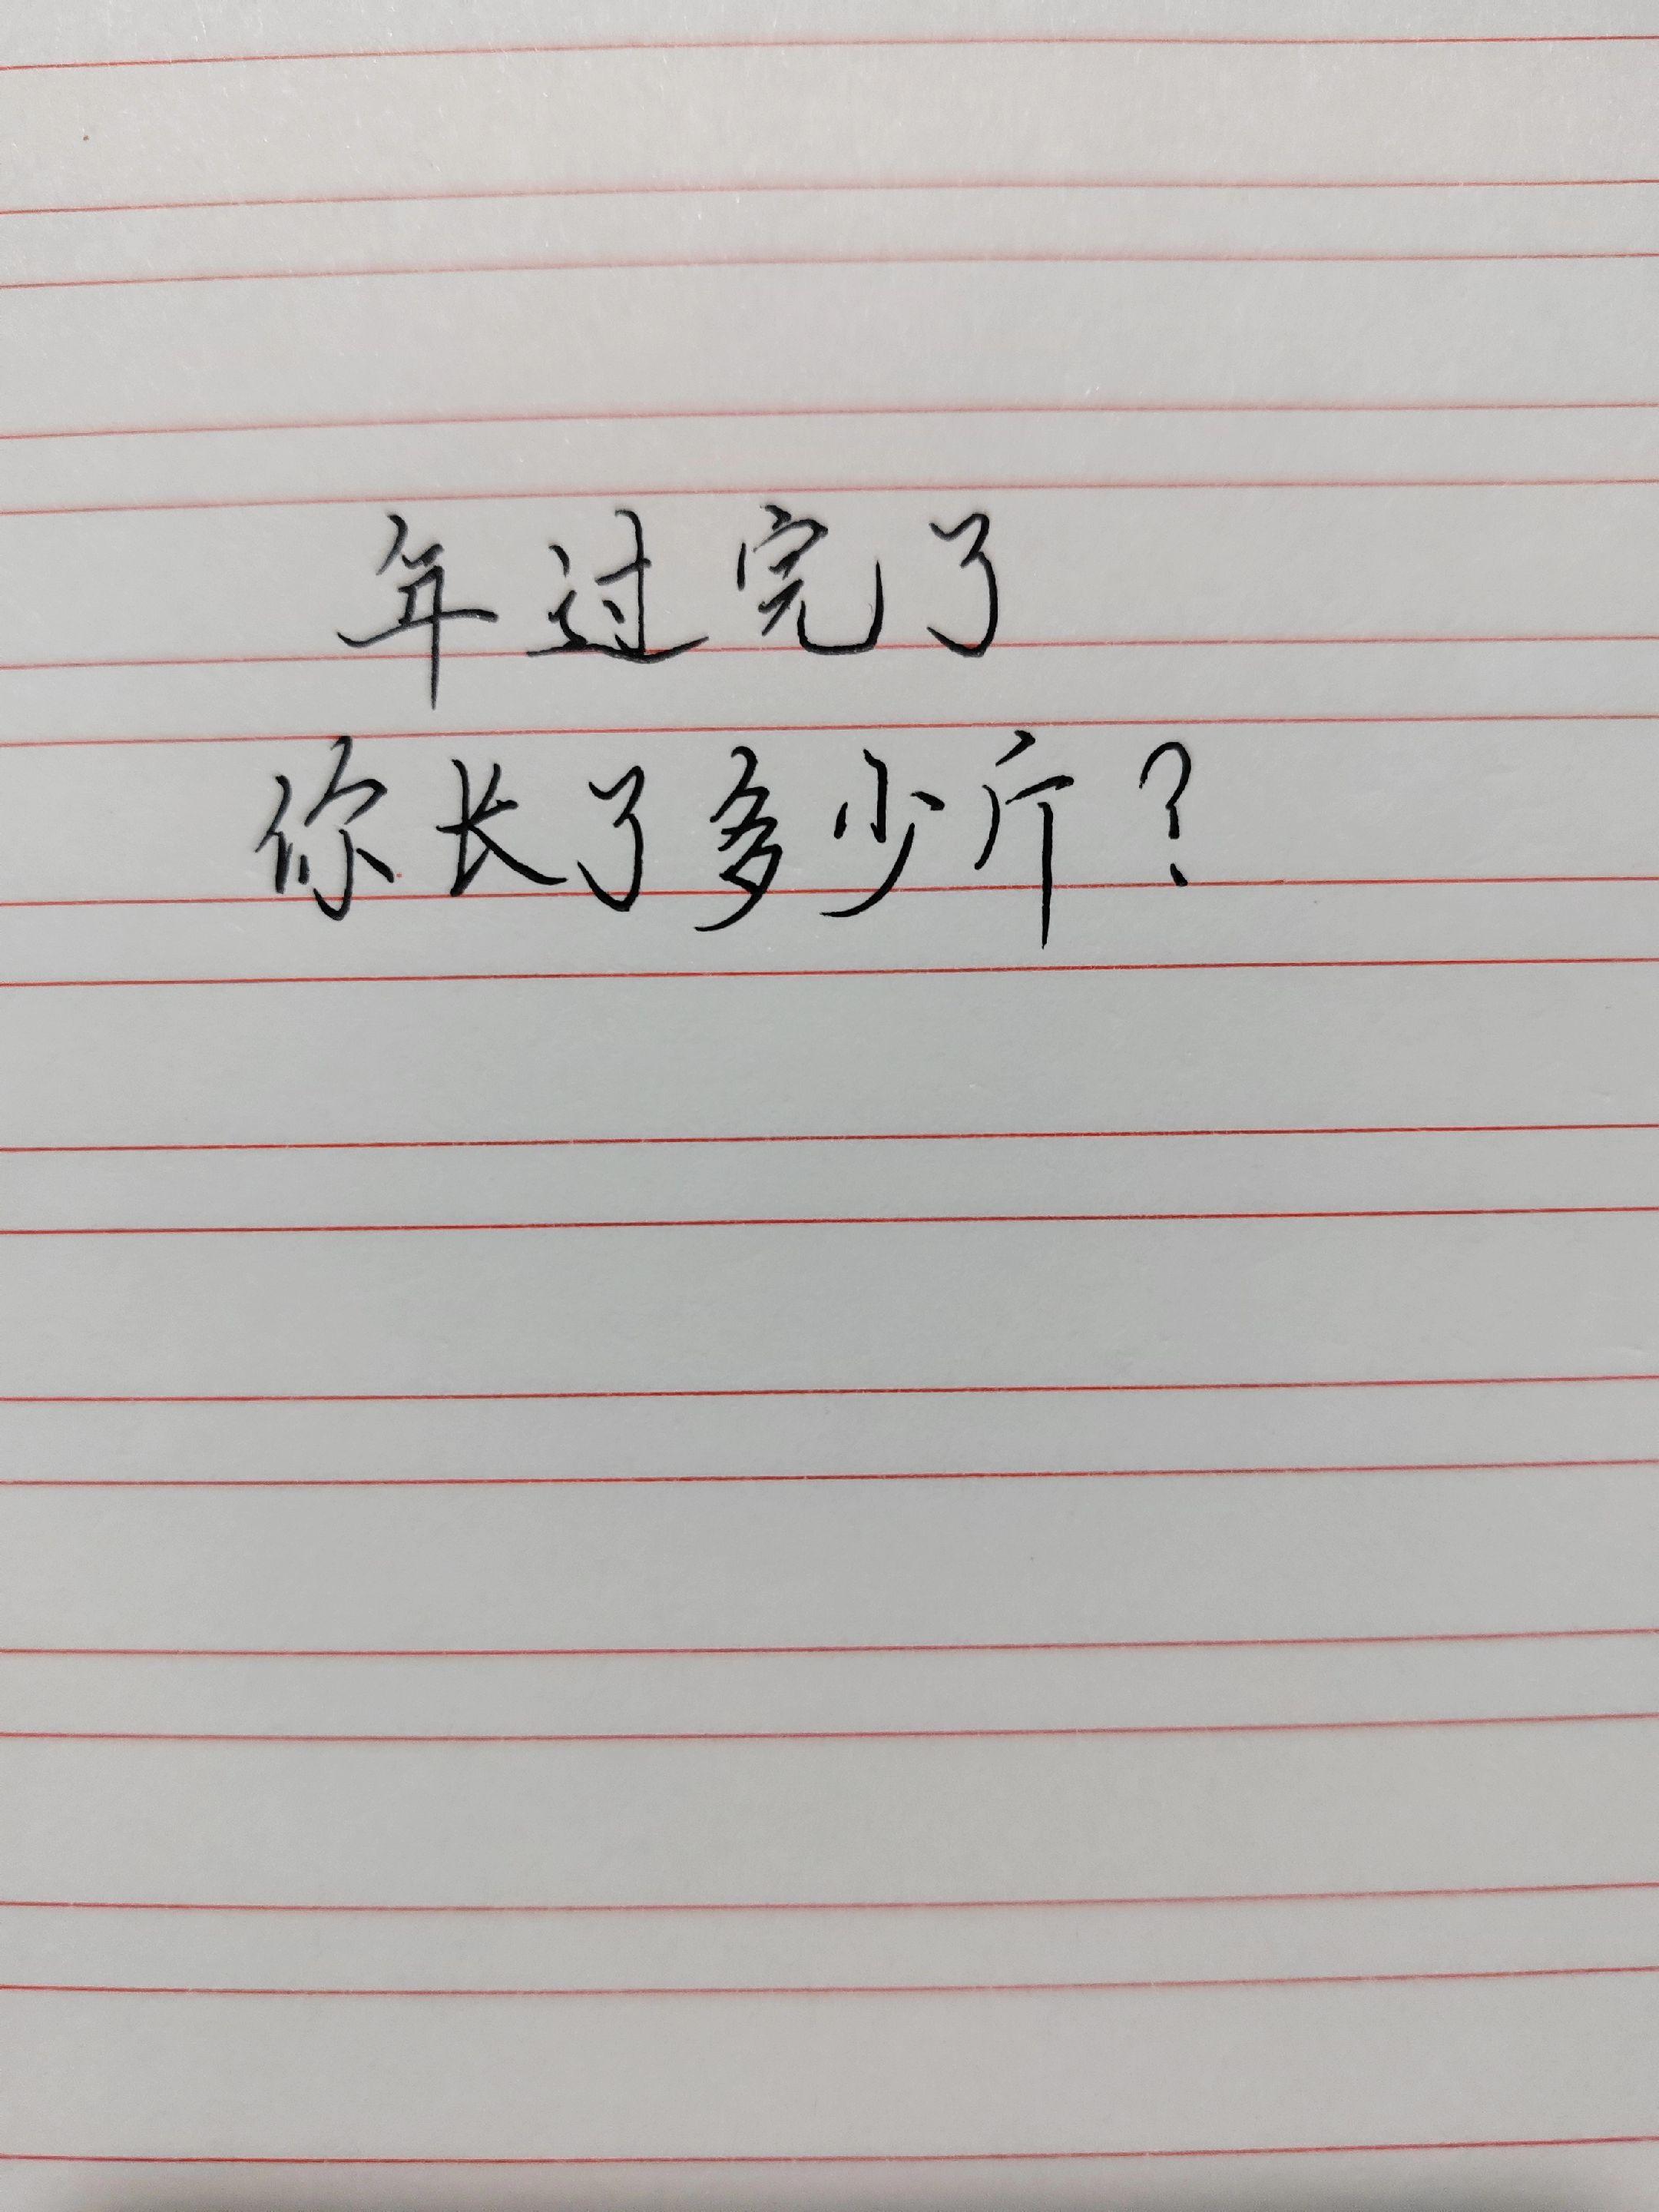 年过完了
你长了多少斤?